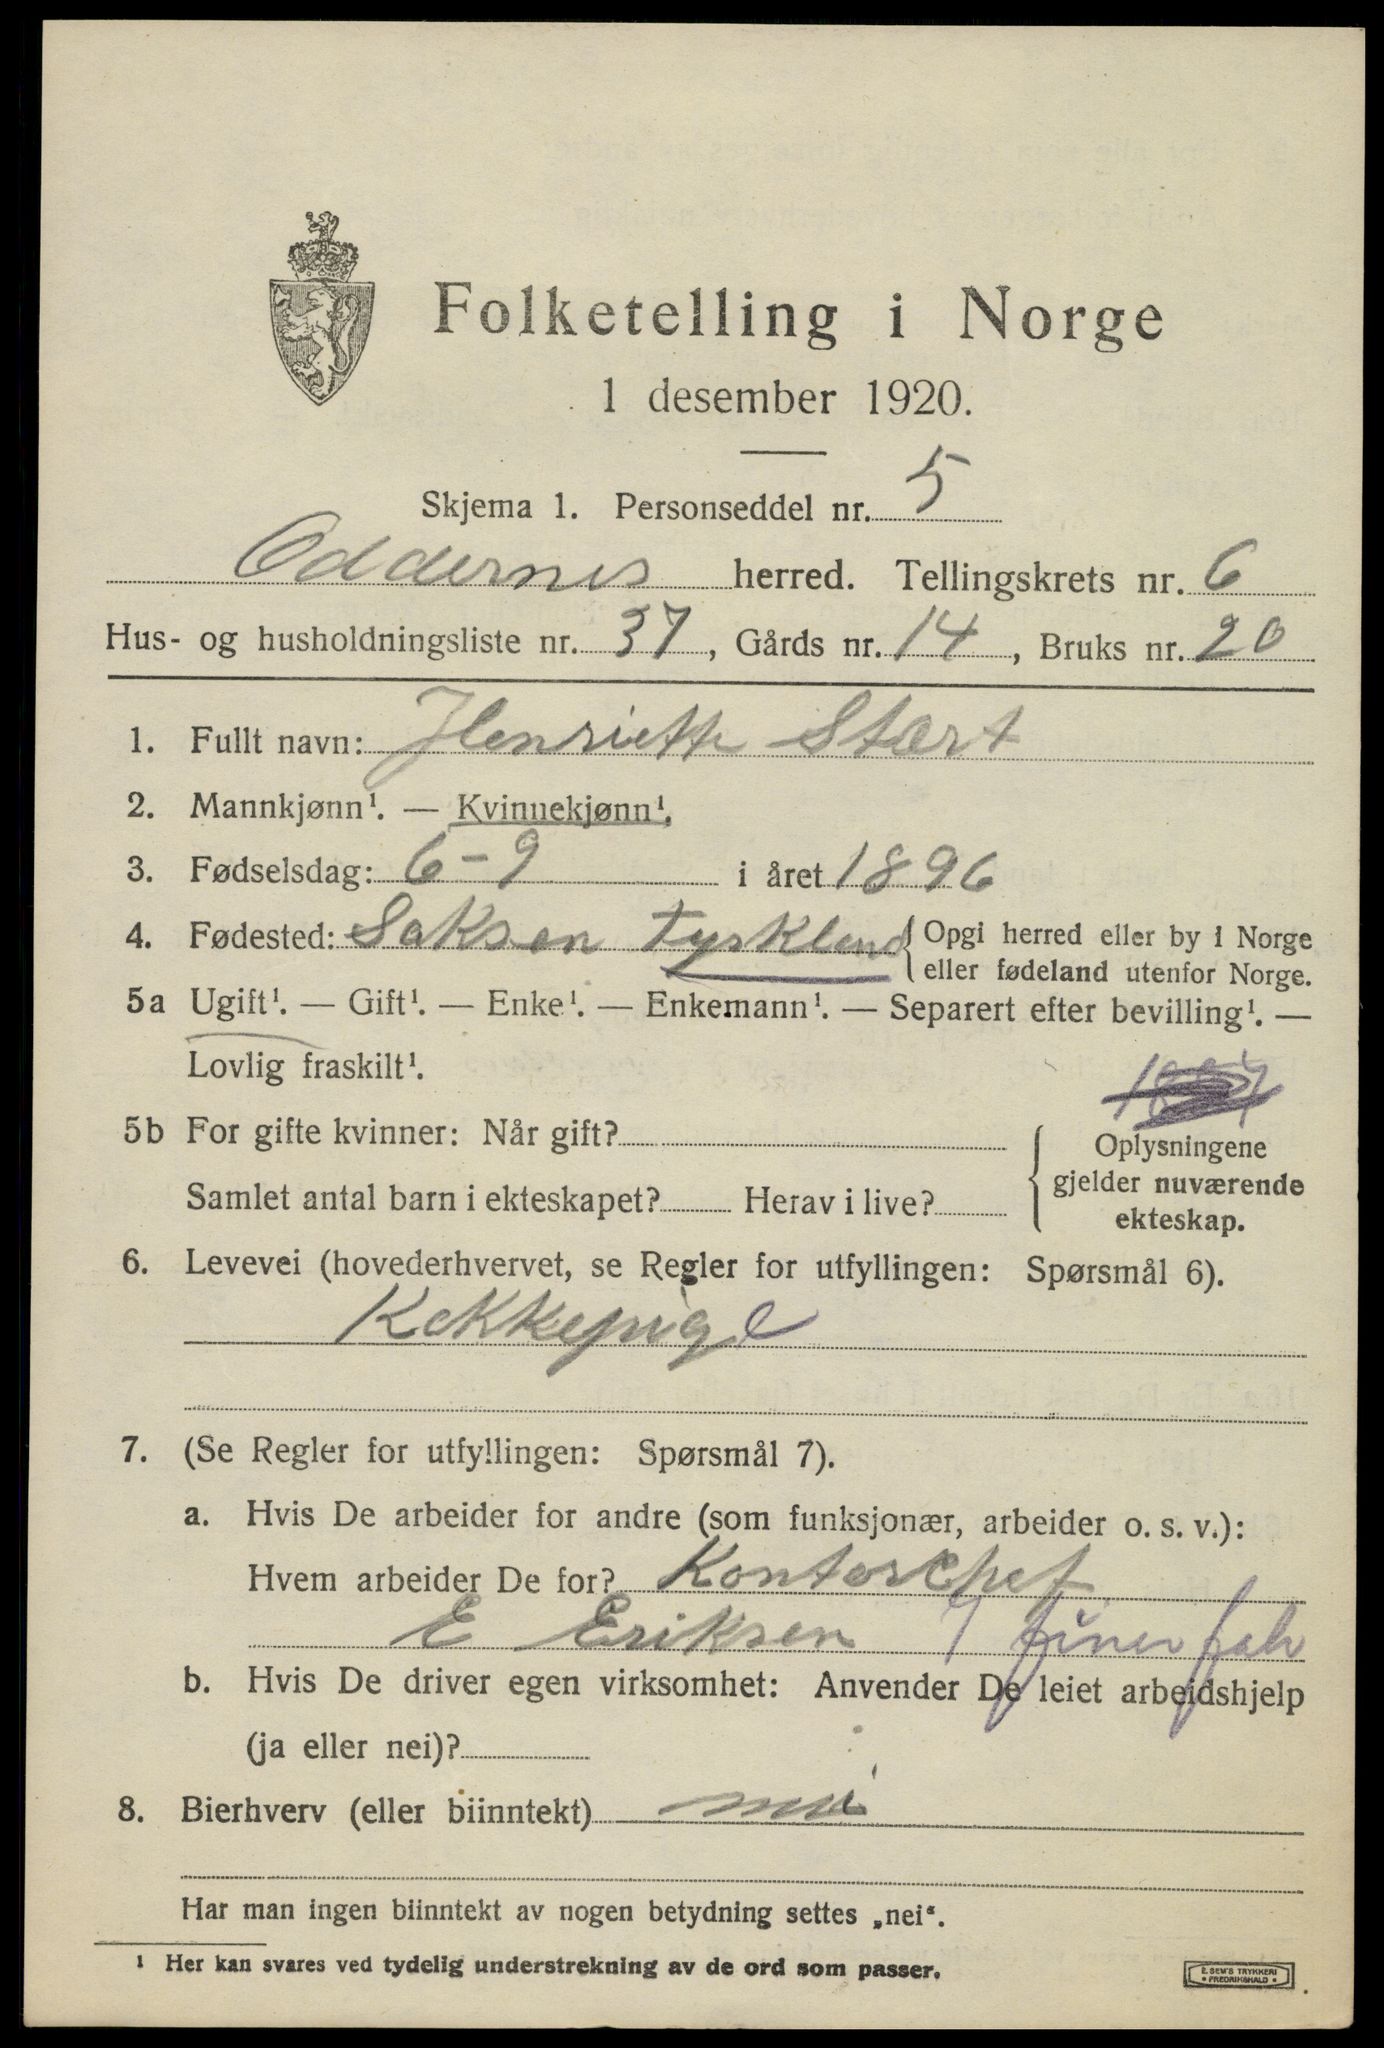 Folketelling i Norge
1 desember 1920.
Skjema 1. Personseddel nr. 5
Oddernes herred. Tellingskrets nr. 6
Hus- og husholdningsliste nr. 37, Gårds nr. 14, Bruks nr. 20
1. Fullt navn: Henriette Stært
2. Mannkjønn¹. — Kvinnekjønn¹.
3. Fødselsdag: 6-9 i året 1896
4. Fødested: Saksen Tyskland { Opgi herred eller by i Norge
eller fødeland utenfor Norge.
5a Ugift¹. — Gift¹. — Enke¹. — Enkemann¹. — Separert efter bevilling¹. —
Lovlig fraskilt¹.
5b For gifte kvinner: Når gift?
Samlet antal barn i ekteskapet? Herav i live?
Oplysningene
gjelder nuværende
ekteskap.
6. Levevei (hovederhvervet, se Regler for utfyllingen: Spørsmål 6).
Kokkepige
7. (Se Regler for utfyllingen: Spørsmål 7).
a. Hvis De arbeider for andre (som funksjonær, arbeider o. s. v.):
Hvem arbeider De for? Kontorchef
E Eriksen
b. Hvis De driver egen virksomhet: Anvender De leiet arbeidshjelp
(ja eller nei)?
8. Bierhverv (eller biinntekt) nei
Har man ingen biinntekt av nogen betydning settes „nei“.
¹ Her kan svares ved tydelig understrekning av de ord som passer.
E. SEM'S TRYKKERI
• FREDRIKSHALD •